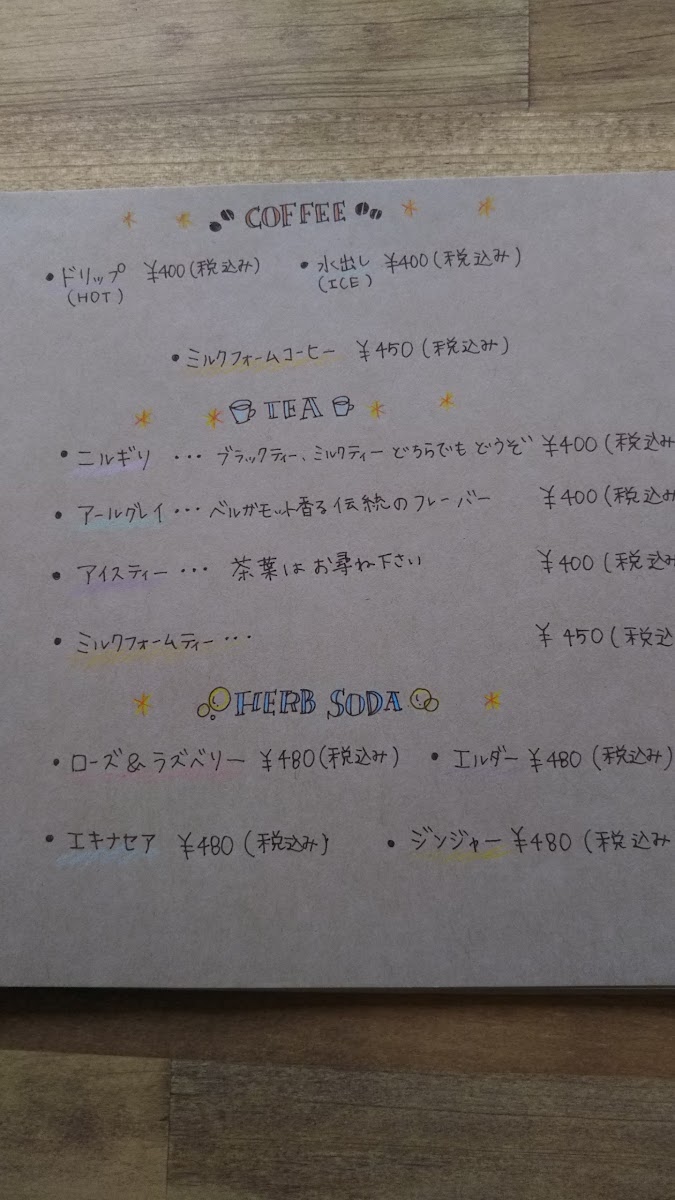 COFFEE
・ドリップ ¥400(税込み) ・水出し ¥400(税込み)
(HOT) (ICE)
・ミルクフォームコーヒー ¥450(税込み)
TEA
・ニルギリ ・・・ ブラックティー、ミルクティー どちらでも どうぞ ¥400(税込み
・アールグレイ・・・ベルガモット香る伝統のフレーバー ¥400(税込み
・アイスティー・・・ 茶葉は お尋ね下さい ¥400(税込み
・ミルクフォームティー・・・ ¥450(税込
HERB SODA
・ローズ&ラズベリー ¥480(税込み) ・エルダー ¥480(税込み)
・エキナセア ¥480(税込み) ・ジンジャー ¥480(税込み